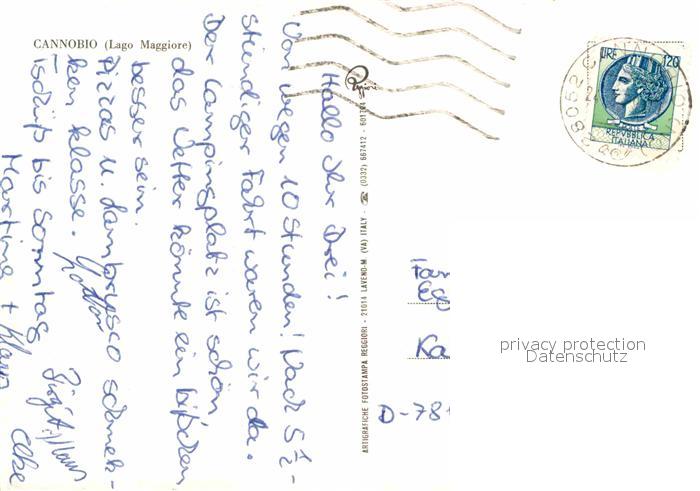 CANNOBIO (Lago Maggiore)
Hallo Ihr Drei!
Von wegen 10 Stunden! Nach 5 1/2-
stündiger Fahrt waren wir da.
Der Campingplatz ist schön
das Wetter könnte ein bißchen
besser sein.
Pizzas u. Lambrusco schmek-
ken klasse.
Tschüß bis Sonntag
Martina + Klaus
Elke
ARTIGRAFICHE FOTOSTAMPA REGGIORI - 21014 LAVENO-M. (VA) ITALY - ☎ (0332) 667412 - 601704
LIRE 120
REPVBBLICA
ITALIANA
28052
Fam
Ka
D-78
privacy protection
Datenschutz